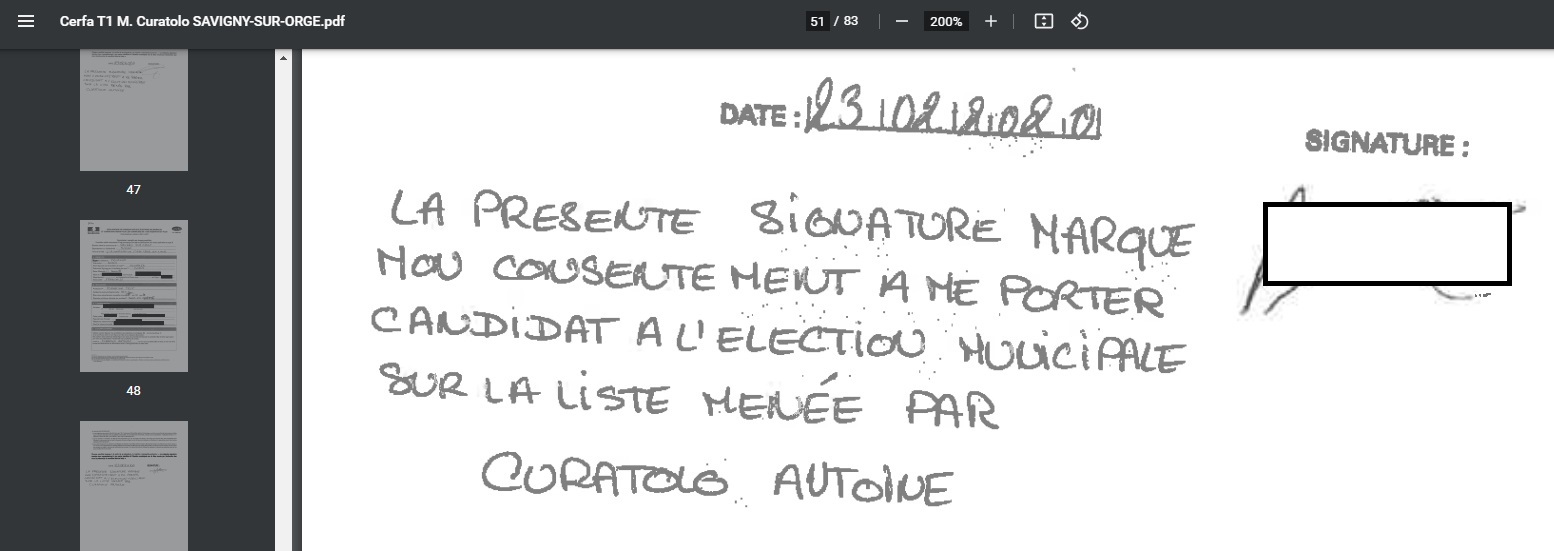 Cerfa T1 M. Curatolo SAVIGNY-SUR-ORGE.pdf
51 / 83
200%
47
48
DATE : 23 02 2020
SIGNATURE :
LA PRESENTE SIGNATURE MARQUE
MON CONSENTEMENT A ME PORTER
CANDIDAT A L'ELECTION MUNICIPALE
SUR LA LISTE MENÉE PAR
CURATOLO ANTOINE